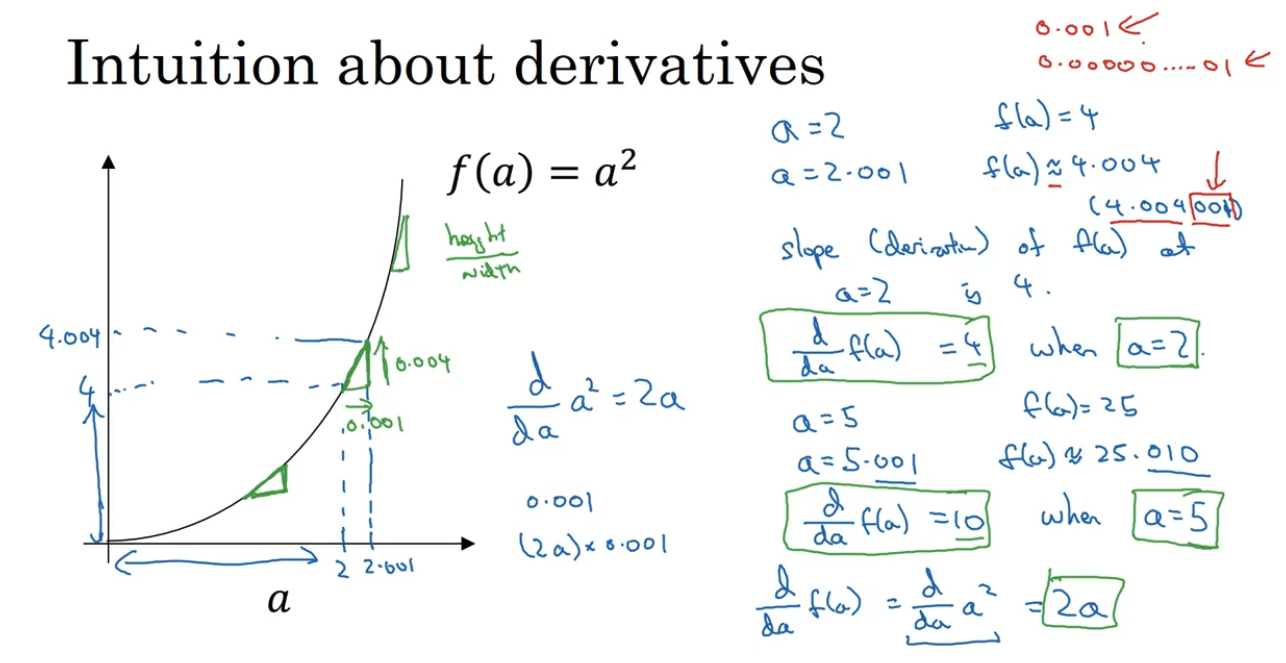 Intuition about derivatives
0.001 ←
0.00000.....01 ←
f(a) = a²
height
width
4.004
4
0.004
0.001
2 2.001
a
d/da a² = 2a
0.001
(2a) × 0.001
a = 2 f(a) = 4
a = 2.001 f(a) ≈ 4.004
(4.004001)
slope (derivative) of f(a) at
a=2 is 4.
d/da f(a) = 4 when a=2.
a = 5 f(a) = 25
a = 5.001 f(a) ≈ 25.010
d/da f(a) = 10 when a=5
d/da f(a) = d/da a² = 2a